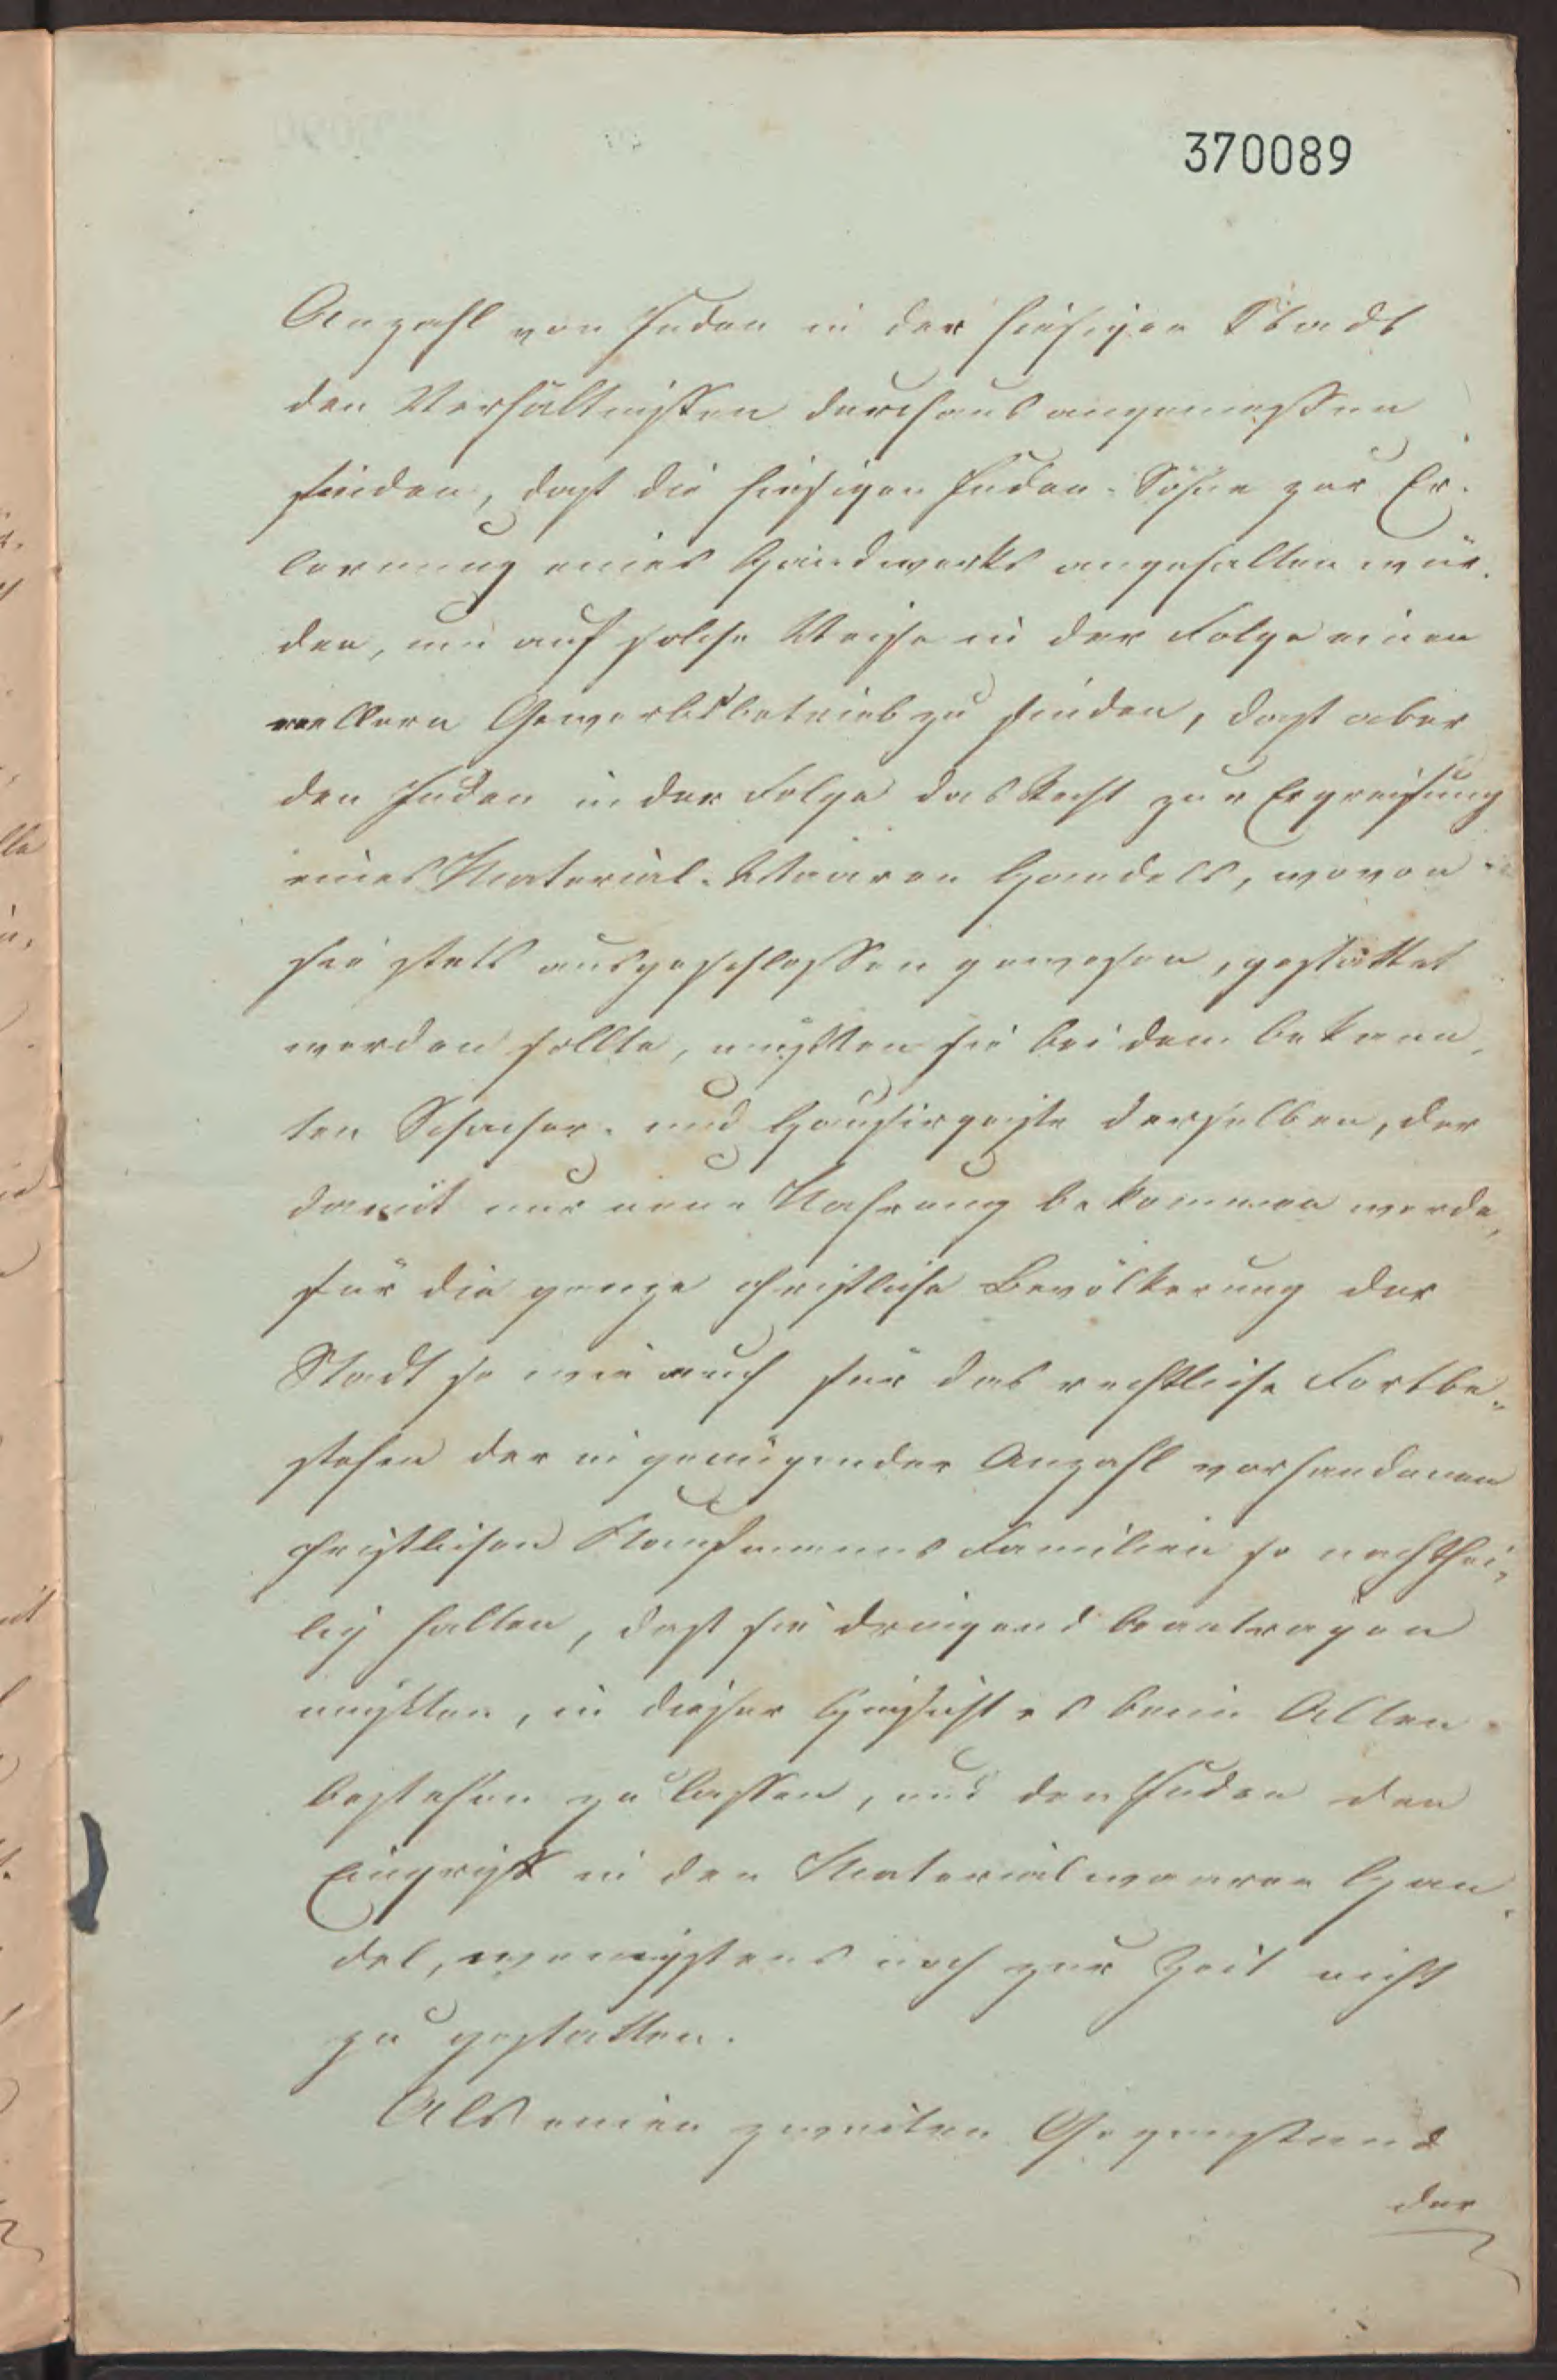 370089
Anzahl von Juden in der hiesigen Stadt
den Verhältnissen durchaus angemessen
finden, daß die hiesigen Juden-Söhne zur Er-
lernung eines Handwerks angehalten wür-
den, um auf solche Weise in der Folge einen
reellern Gewerbsbetrieb zu finden, daß aber
den Juden in der Folge das Recht zur Ergreifung
eines Material-Waaren Handels, wovon
sie stets ausgeschlossen gewesen, gestattet
werden sollte, müßten sie bei dem bekann-
ten Schacher- und Hausirgeiste derselben, der
damit nur neue Nahrung bekommen werde,
für die ganze christliche Bevölkerung der
Stadt so wie auch für das rechtliche Fortbe-
stehen der in genügender Anzahl vorhandenen
christlichen Kaufmanns Familien so nachthei-
lig halten, daß sie dringend beantragen
müßten, in dieser Hinsicht es beim Alten
bestehen zu lassen, und den Juden den
Eingriff in den Materialwaaren Han-
del, wenigstens noch zur Zeit nicht
zu gestatten.
Als einen zweiten Gegenstand
der